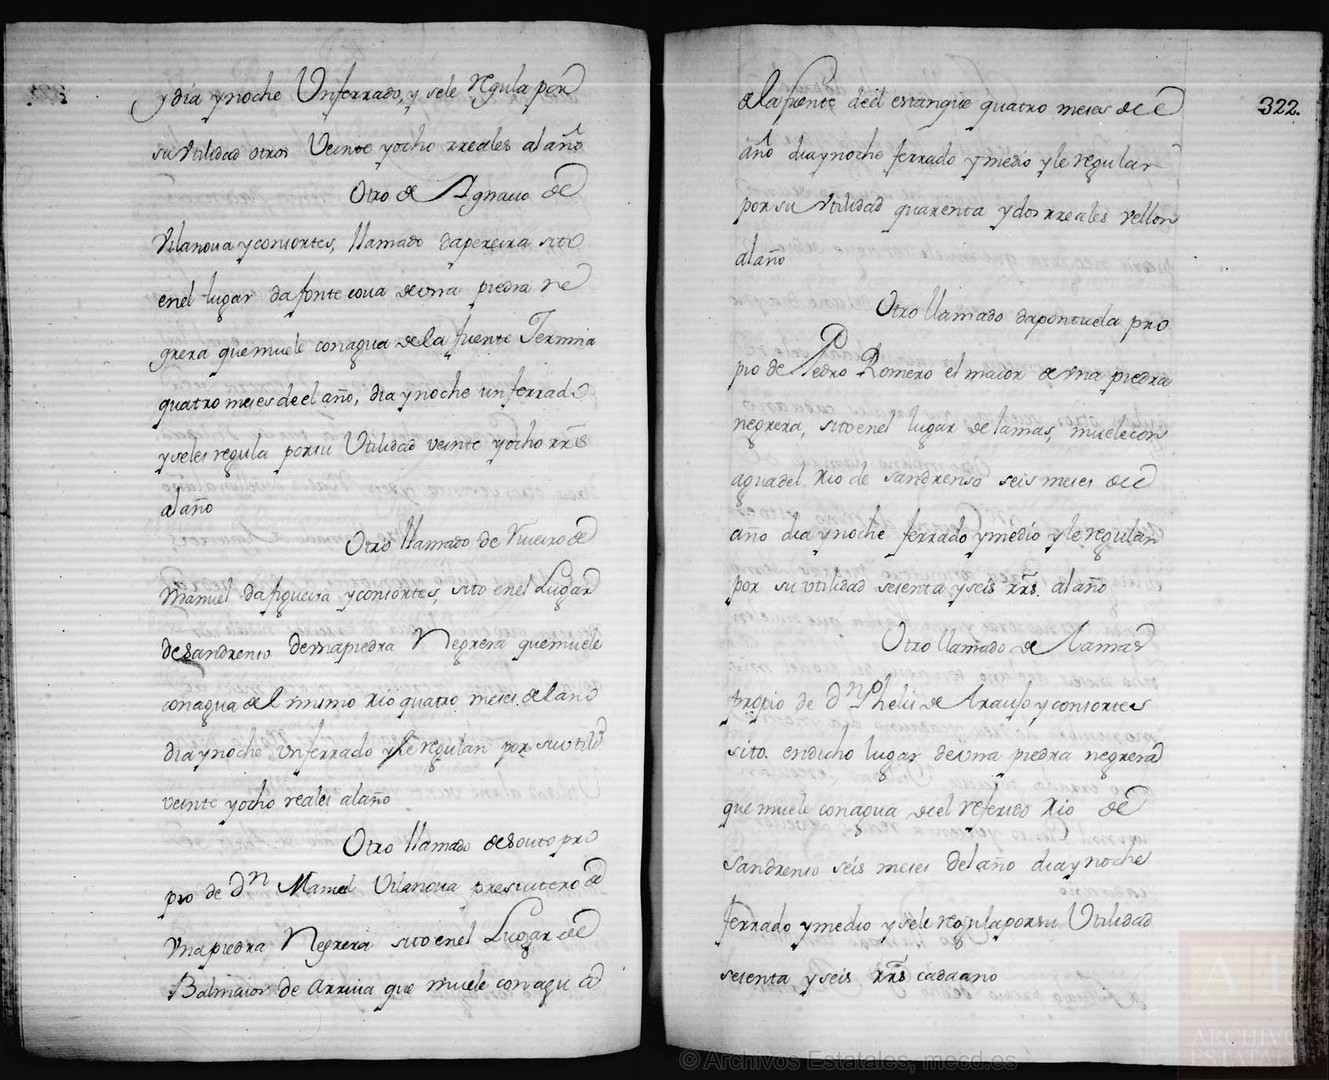 y dia y noche Un ferrado, y sele regula por
su Utilidad otros Veinte y ocho rreales al año
Otro de Ignacio de
Vilanova y consortes, llamado dapereira sito
en el lugar da fonte cova de una piedra ne
grera que muele con agua de la fuente Termina
quatro meses de el año, dia y noche un ferrado
y seles regula por su Utilidad veinte y ocho rrs
al año
Otro llamado de Viveiro de
Manuel da figueira y consortes, sito en el Lugar
de Sandrenso de una piedra Negrera que muele
con agua del mismo Rio quatro meses del año
dia y noche un ferrado y le regulan por su utild
veinte y ocho reales al año
Otro llamado de Souto pro
pio de Dn Manuel Vilanova presvitero de
Una piedra Negrera sito en el Lugar de
Balmaior de arriva que muele con agua
322.
de la fuente de el estanque quatro meses de el
año dia y noche ferrado y medio y le regulan
por su Utilidad quarenta y dos rreales vellon
al año
Otro llamado dapontuela pro
pio de Pedro Romero el maior de una piedra
negrera, sito en el lugar de lamas, muele con
agua del Rio de Sandrenso seis meses de el
año dia y noche ferrado y medio y le regulan
por su utilidad setenta y seis rrs. al año
Otro llamado de Lamas
propio de Dn Phelis de Araujo y consortes
sito. en dicho lugar de una piedra negrera
que muele con agua de el referido Rio de
Sandrenso seis meses del año dia y noche
ferrado y medio y sele regula por su Utilidad
setenta y seis rrs cada año
© Archivos Estatales, mecd.es
ARCHIVOS
ESTATALES